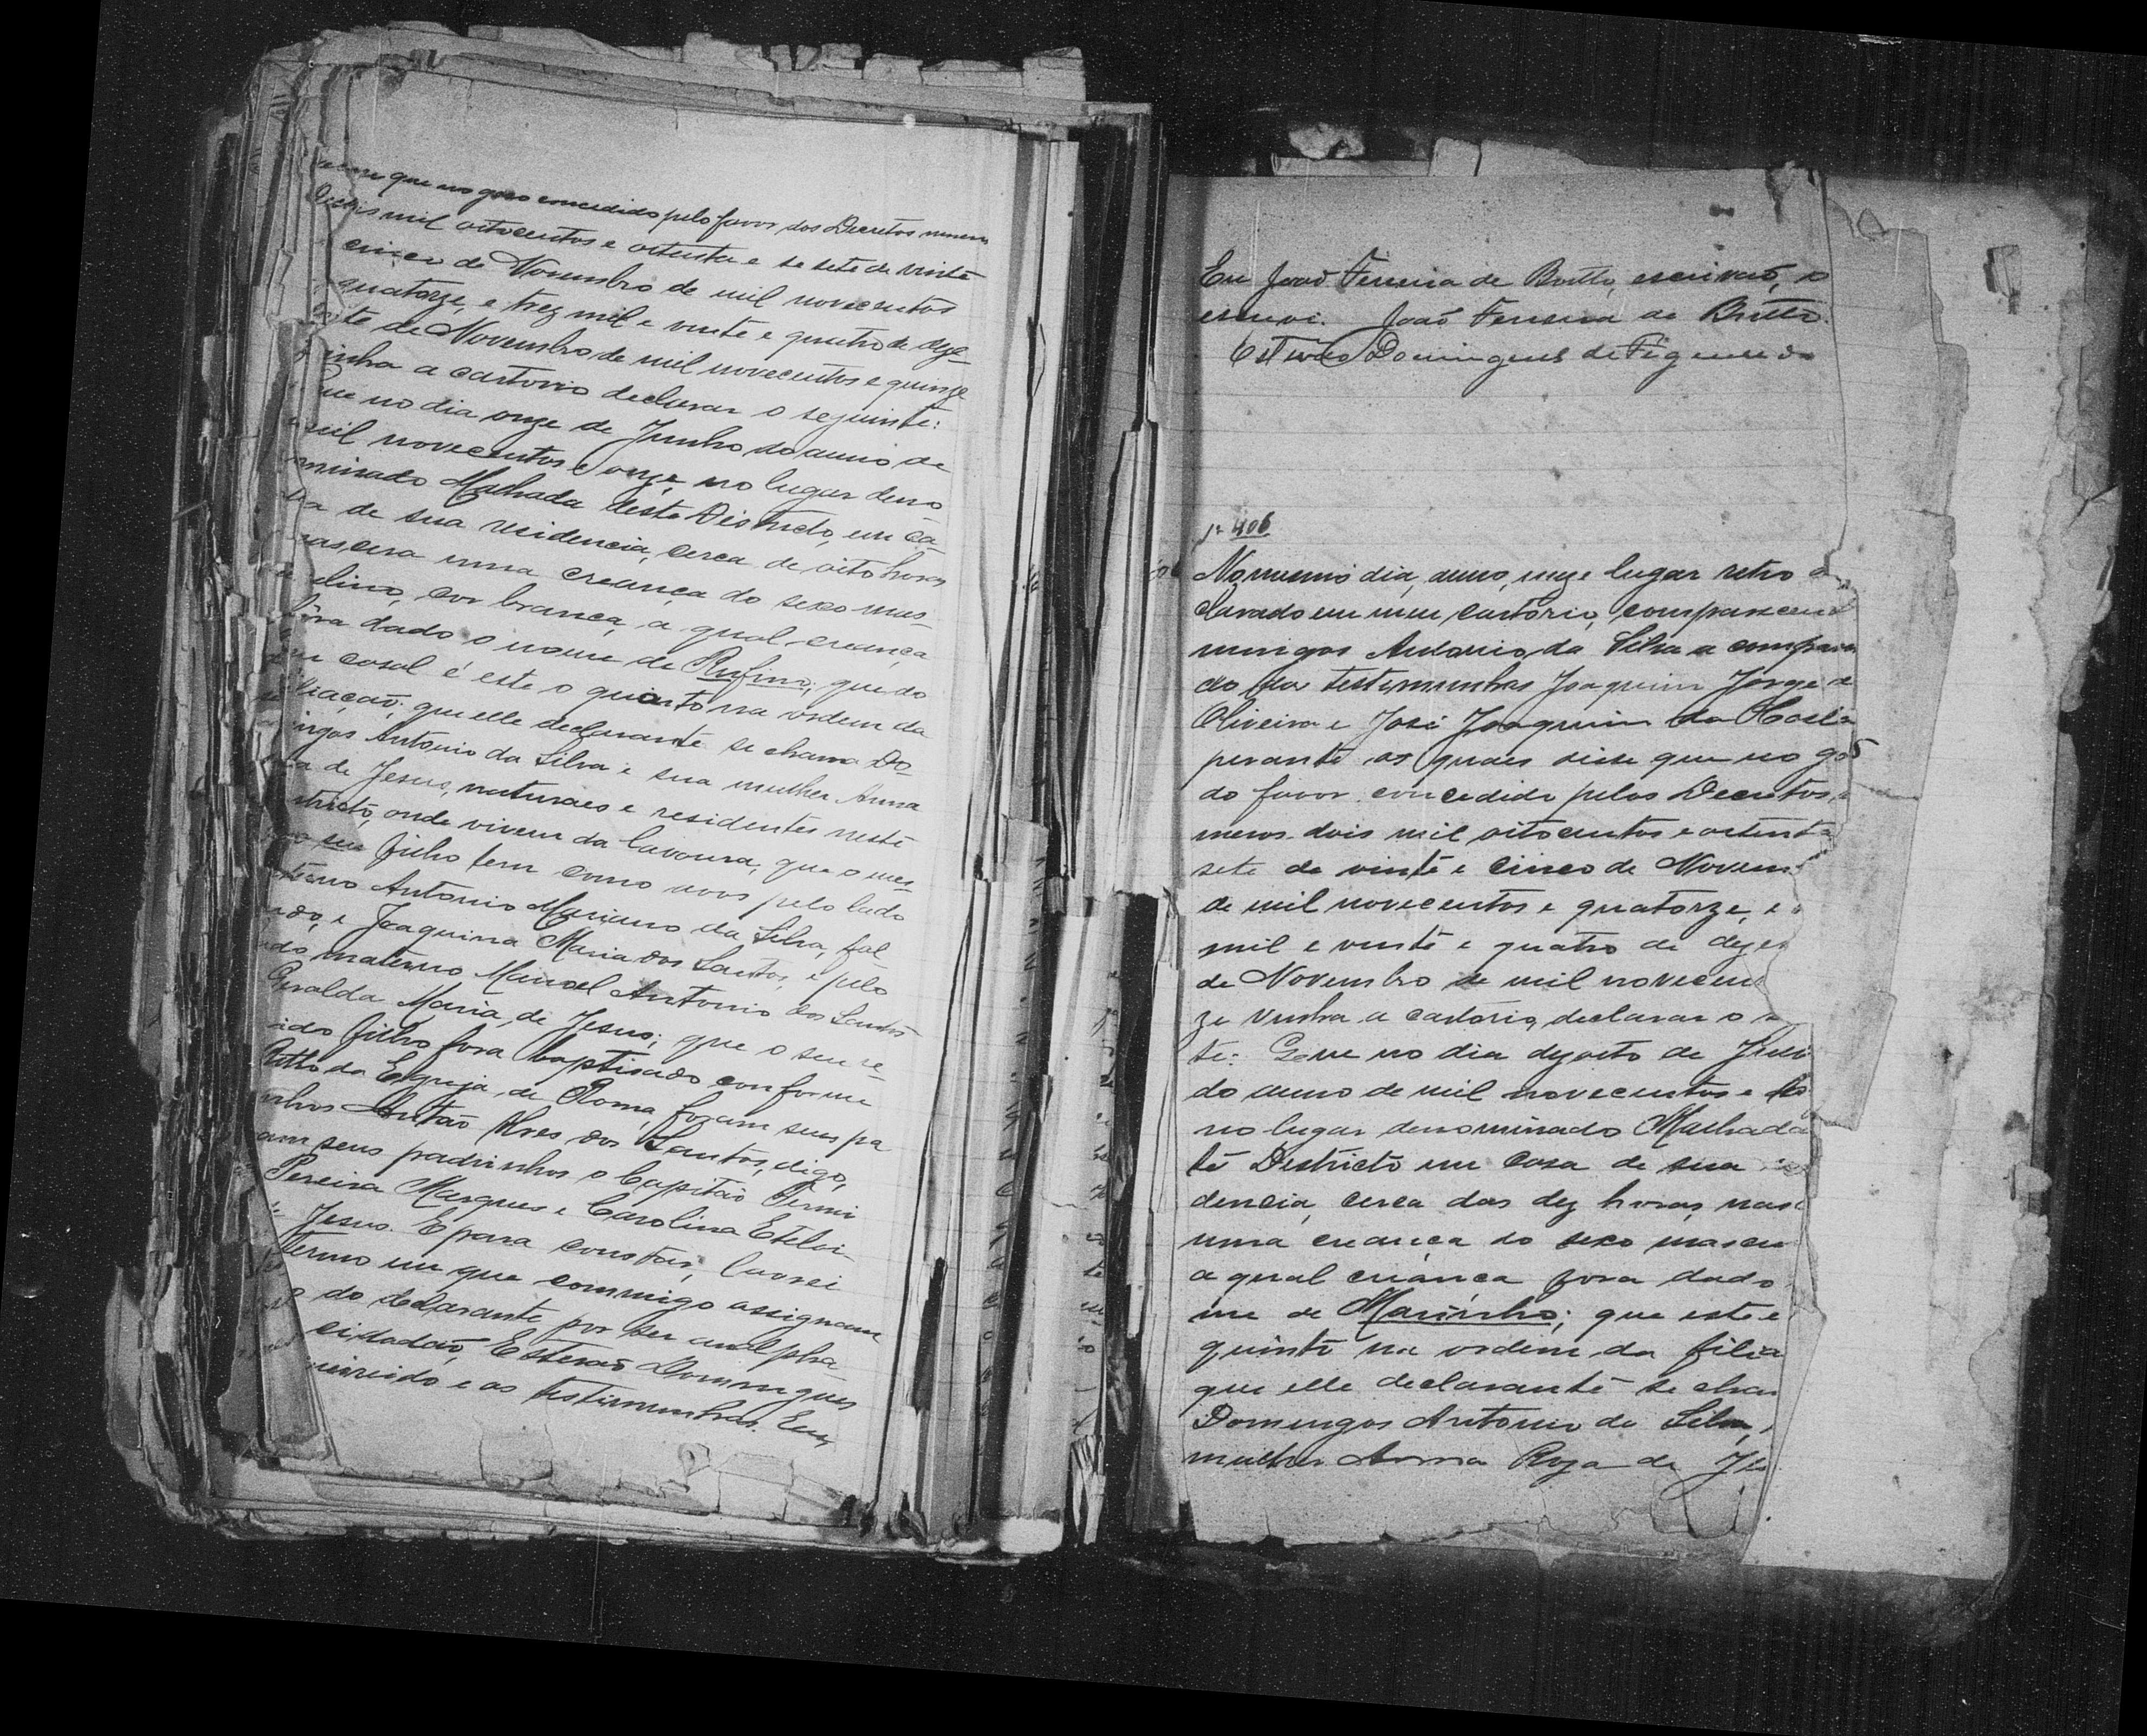 que no goso concedido pelo favor dos Decretos numeros
mil oitocentos e oitenta e sete de vinte
cinco de Novembro de mil novecentos
quatorze, e trez mil e vinte e quatro de deze
te de Novembro de mil novecentos e quinze
vinha a cartorio declarar o seguinte:
que no dia onze de Junho do anno de
mil novecentos e onze, no lugar deno
minado Malhada deste Districto, em ca-
sa de sua residencia, cerca de oito horas,
nascera uma creança do sexo mas-
culino, cor branca, a qual creança
fôra dado o nome de Rufino; que do
seu casal é este o quarto na ordem da
filiação; que elle declarante se chama Do-
mingos Antonio da Silva e sua mulher Anna
de Jesus, naturaes e residentes neste
stricto, onde vivem da lavoura, que o mes-
mo seu filho tem como avos pelo lado
terno Antonio Mariano da Silva, fal
ido, e Joaquina Maria dos Santos, e pelo
lado materno Manoel Antonio dos Santos
Geralda Maria de Jesus; que o seu re-
ido filho fora baptisado conforme
Ritto da Egreja de Roma, foram seus pa
inhos Antão Alves dos Santos, digo,
am seus padrinhos o Capitão Firmi
Pereira Marques e Carolina Etelvi
Jesus. E para constar, lavrei
termo em que commigo assignam
go do declarante por ser analpha
cidadão, Estevão Domingues
gueiredo e as testemunhas. Eu,
Eu João Ferreira de Britto, escrivão, o
escrevi. João Ferreira de Britto.
Estevão Domingues de Figueiredo
Nº 406
No mesmo dia, anno, mez e lugar retro de
clarado em meu cartorio, compareceu
mingos Antonio da Silva acompanha
do das testemunhas Joaquim Jorge de
Oliveira e José Joaquim da Costa
perante as quaes disse que no gos
do favor concedido pelos Decretos,
meros dois mil oitocentos e oitenta
sete de vinte e cinco de Novem
de mil novecentos e quatorze, e
mil e vinte e quatro de dezes
de Novembro de mil novecen
ze vinha a cartorio, declarar o s
te: Que no dia dezoito de Ju
do anno de mil novecentos e
no lugar denominado Malhada
te Districto em casa de sua
dencia, cerca das dez horas, nasc
uma creança do sexo mascu
a qual criança fora dado
me de Marinho; que este é
quinto na ordem da filia
que elle declarante se cham
Domingos Antonio da Silva,
mulher Anna Roza de Je